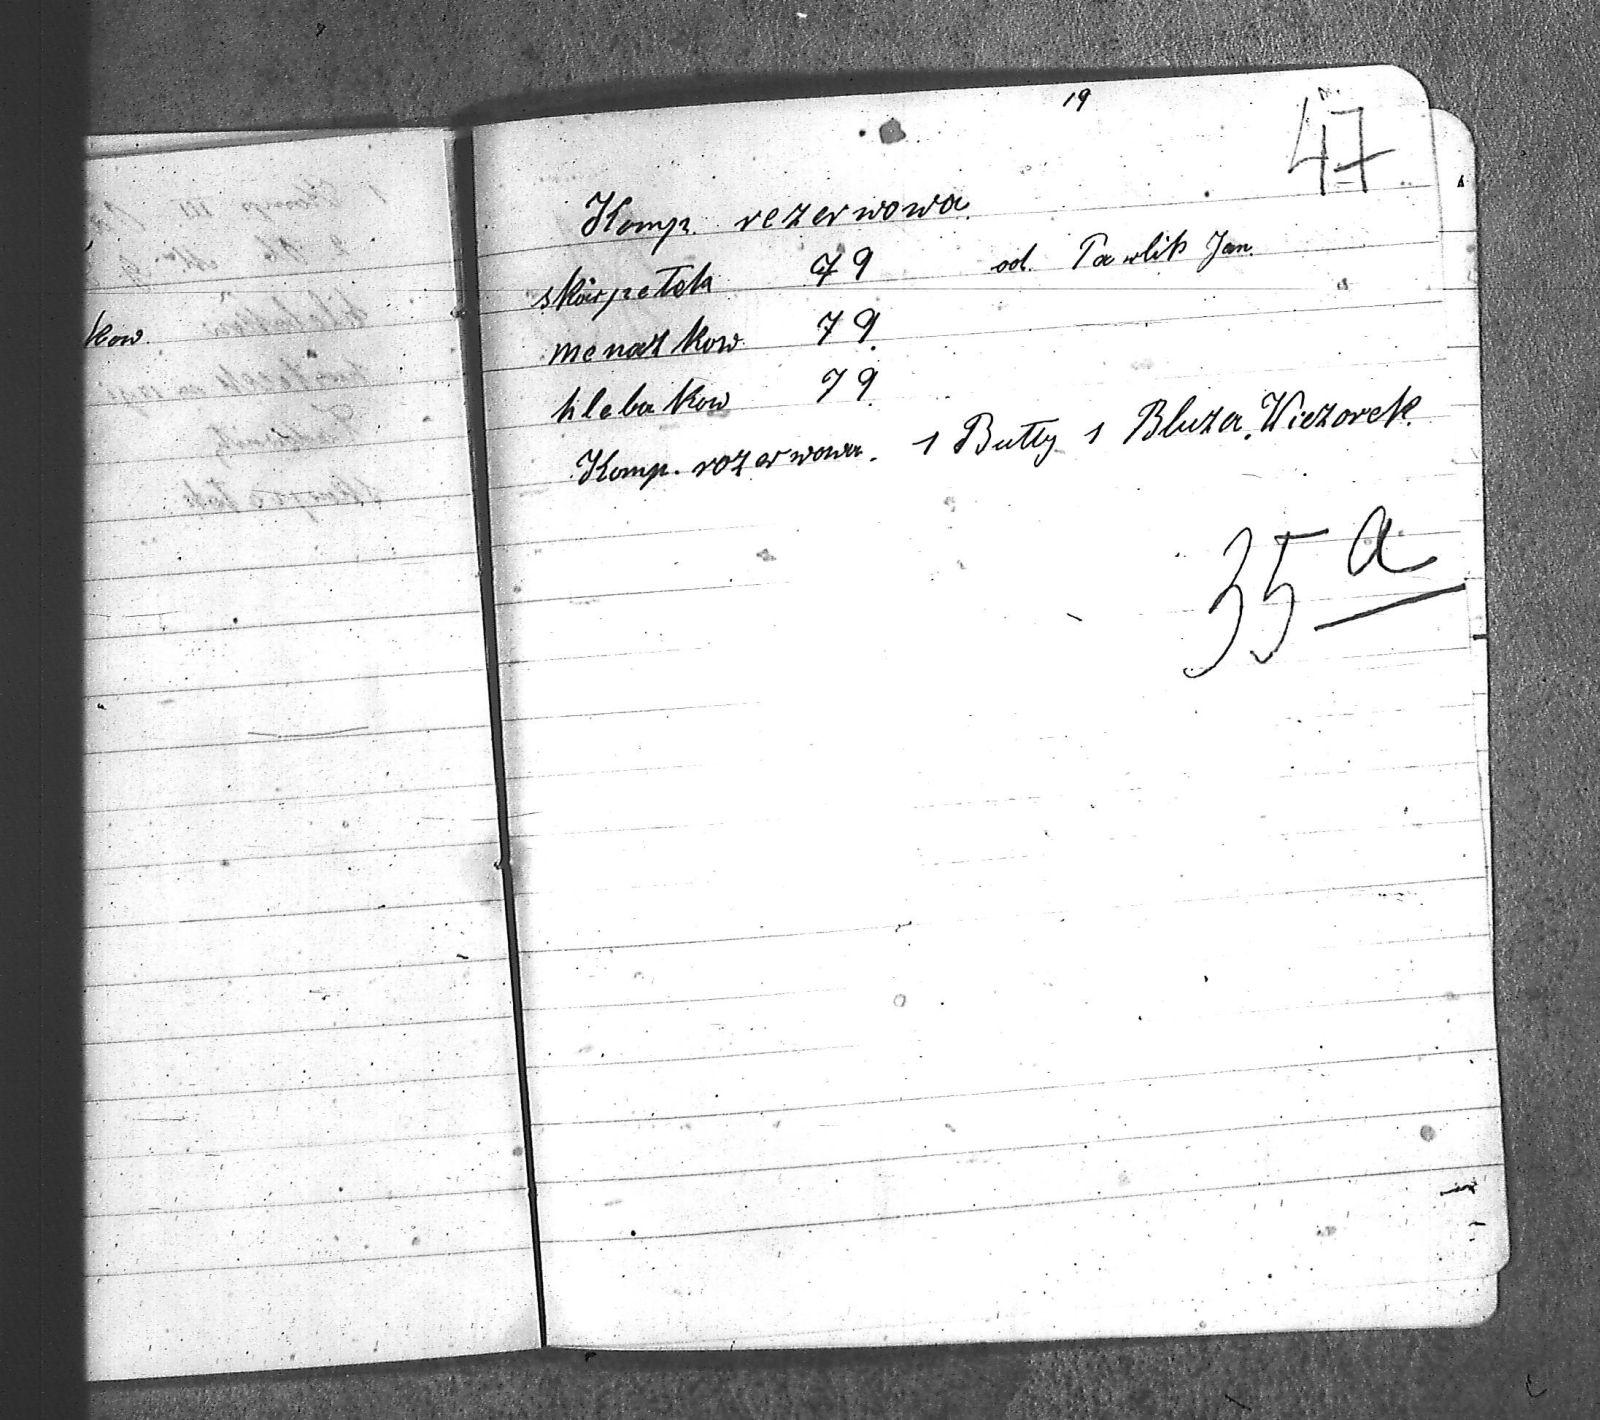 19
47
Komp. rezerwowa.
skarpetek 79 od. Pawlik Jan.
menażkow 79.
hlebakow 79.
Komp. rozerwowa. 1 Butty 1 Bluza. Wiezorek.
35 a
kow.